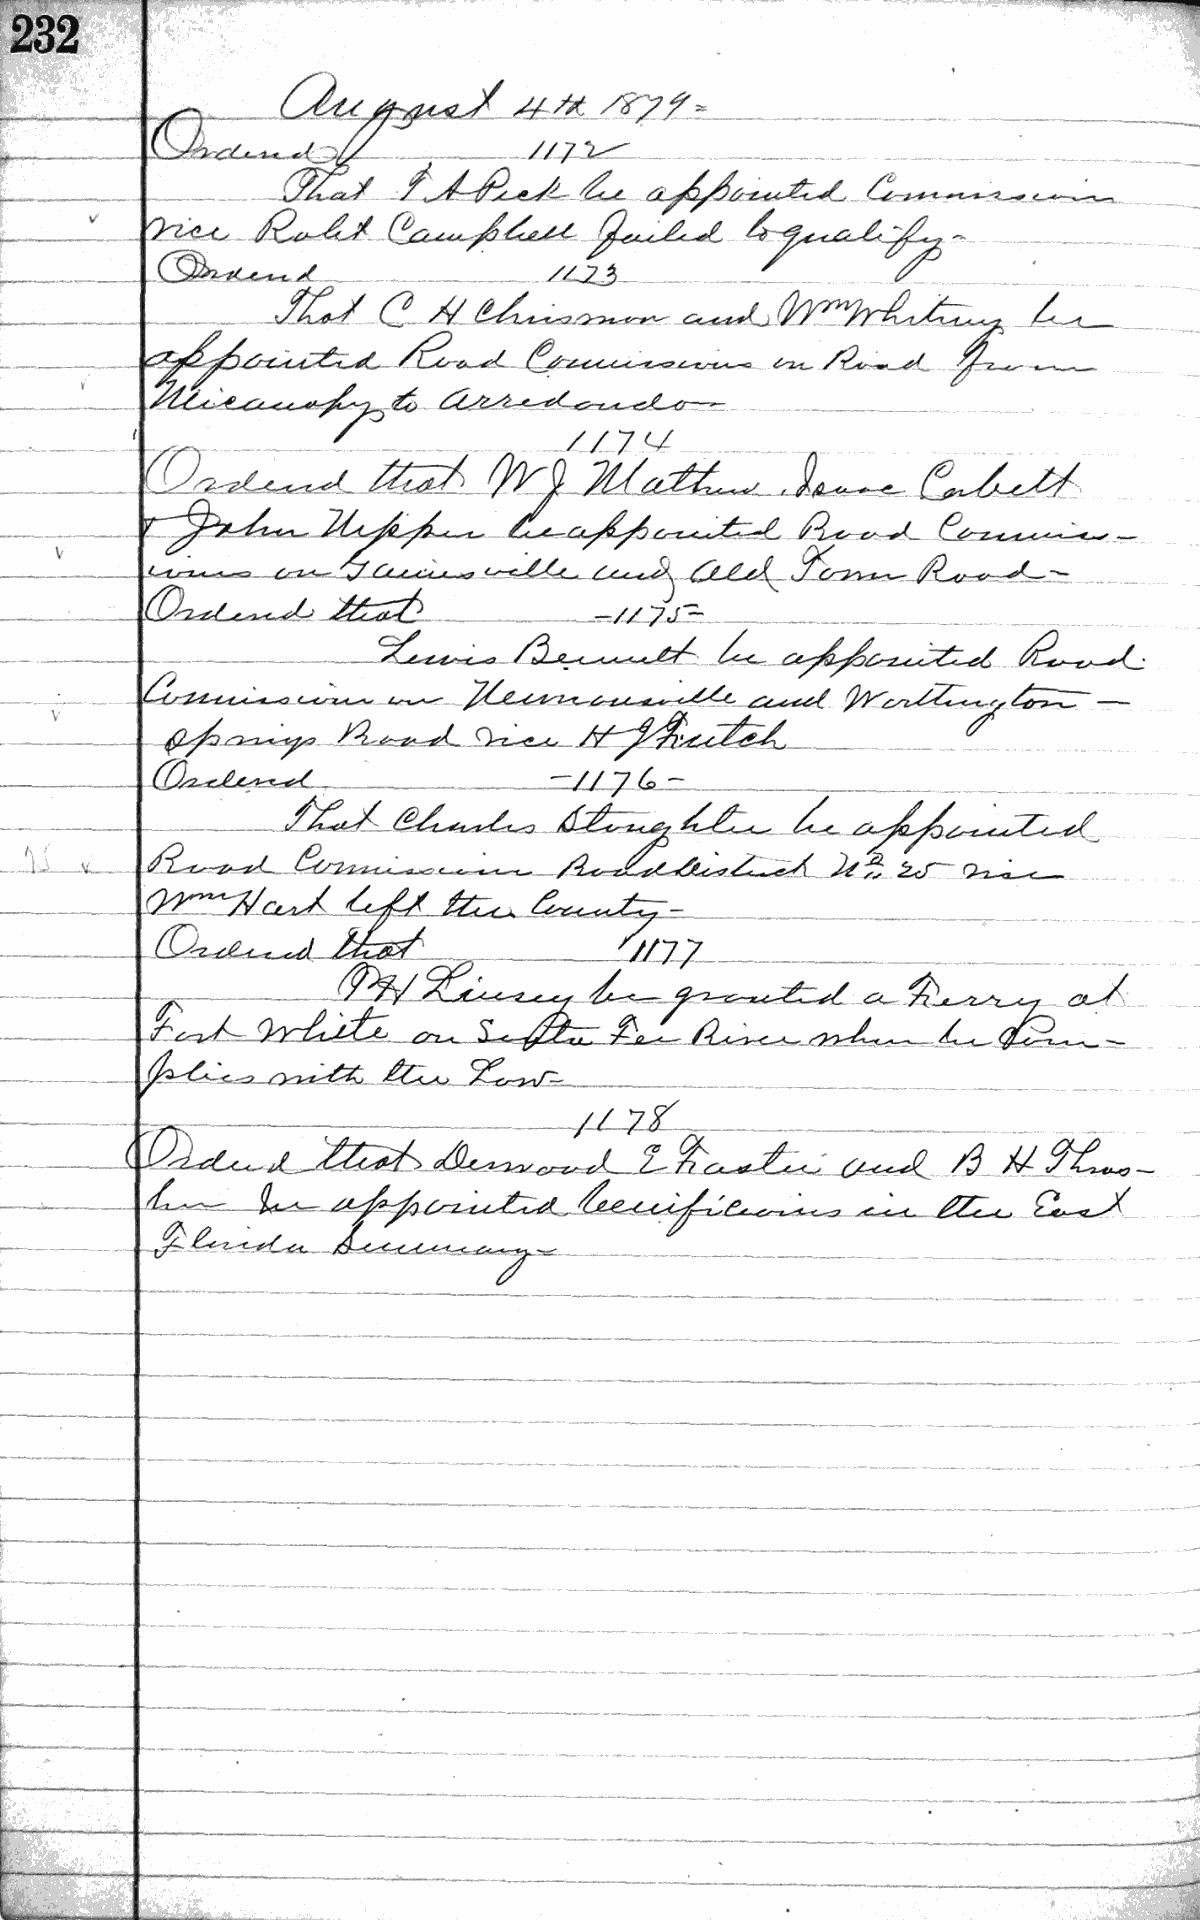 232
August 4th 1879=
Ordered 1172
That T A Peck be appointed Commissioner
vice Robt Campbell failed to qualify-
Ordered 1173
That C H Chrismon and Wm Whitney be
appointed Road Commissioners on Road from
Micanopy to Arredondo-
1174
Ordered that W J Mathew Isaac Corbett
& John Nipper be appointed Road Commiss-
ioners on Gainesville and Old Town Road-
Ordered that -1175-
Lewis Bennett be appointed Road
Commissioner on Newnansville and Worthington-
Springs Road vice H J Futch
Ordered -1176-
That Charles Stoughter be appointed
Road Commissioner Road District No 25 vice
Wm Hart left the County-
Ordered that 1177
Linsey be granted a Ferry at
Fort White on Santa Fee River when he Com-
plies with the Law-
1178
Ordered that E and B H Thras-
her be appointed in the East
Florida Seminary-